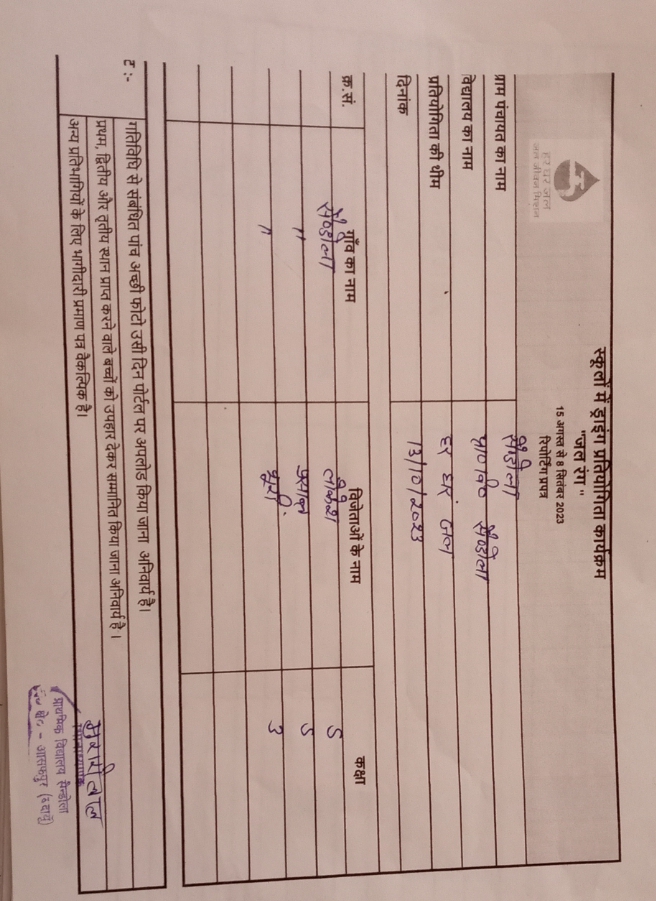 हर घर जल
जल जीवन मिशन
स्कूलों में ड्राइंग प्रतियोगिता कार्यक्रम
"जल रंग"
15 अगस्त से 8 सितंबर 2023
रिपोर्टिंग प्रपत्र
ग्राम पंचायत का नाम सैंडोला
विद्यालय का नाम प्रा० वि० सैण्डोला
प्रतियोगिता की थीम हर घर जल
दिनांक 13/10/2023
क्र.सं. गाँव का नाम विजेताओं के नाम कक्षा
सैण्डोला लोकेश 5
" 5
" 3
ट :- गतिविधि से संबंधित पांच अच्छी फोटो उसी दिन पोर्टल पर अपलोड किया जाना अनिवार्य है।
प्रथम, द्वितीय और तृतीय स्थान प्राप्त करने वाले बच्चों को उपहार देकर सम्मानित किया जाना अनिवार्य है।
अन्य प्रतिभागियों के लिए भागीदारी प्रमाण पत्र वैकल्पिक है।
मुरारीलाल
प्राथमिक विद्यालय सैन्डोला
क्षे० - आसफपुर (बदायूं)